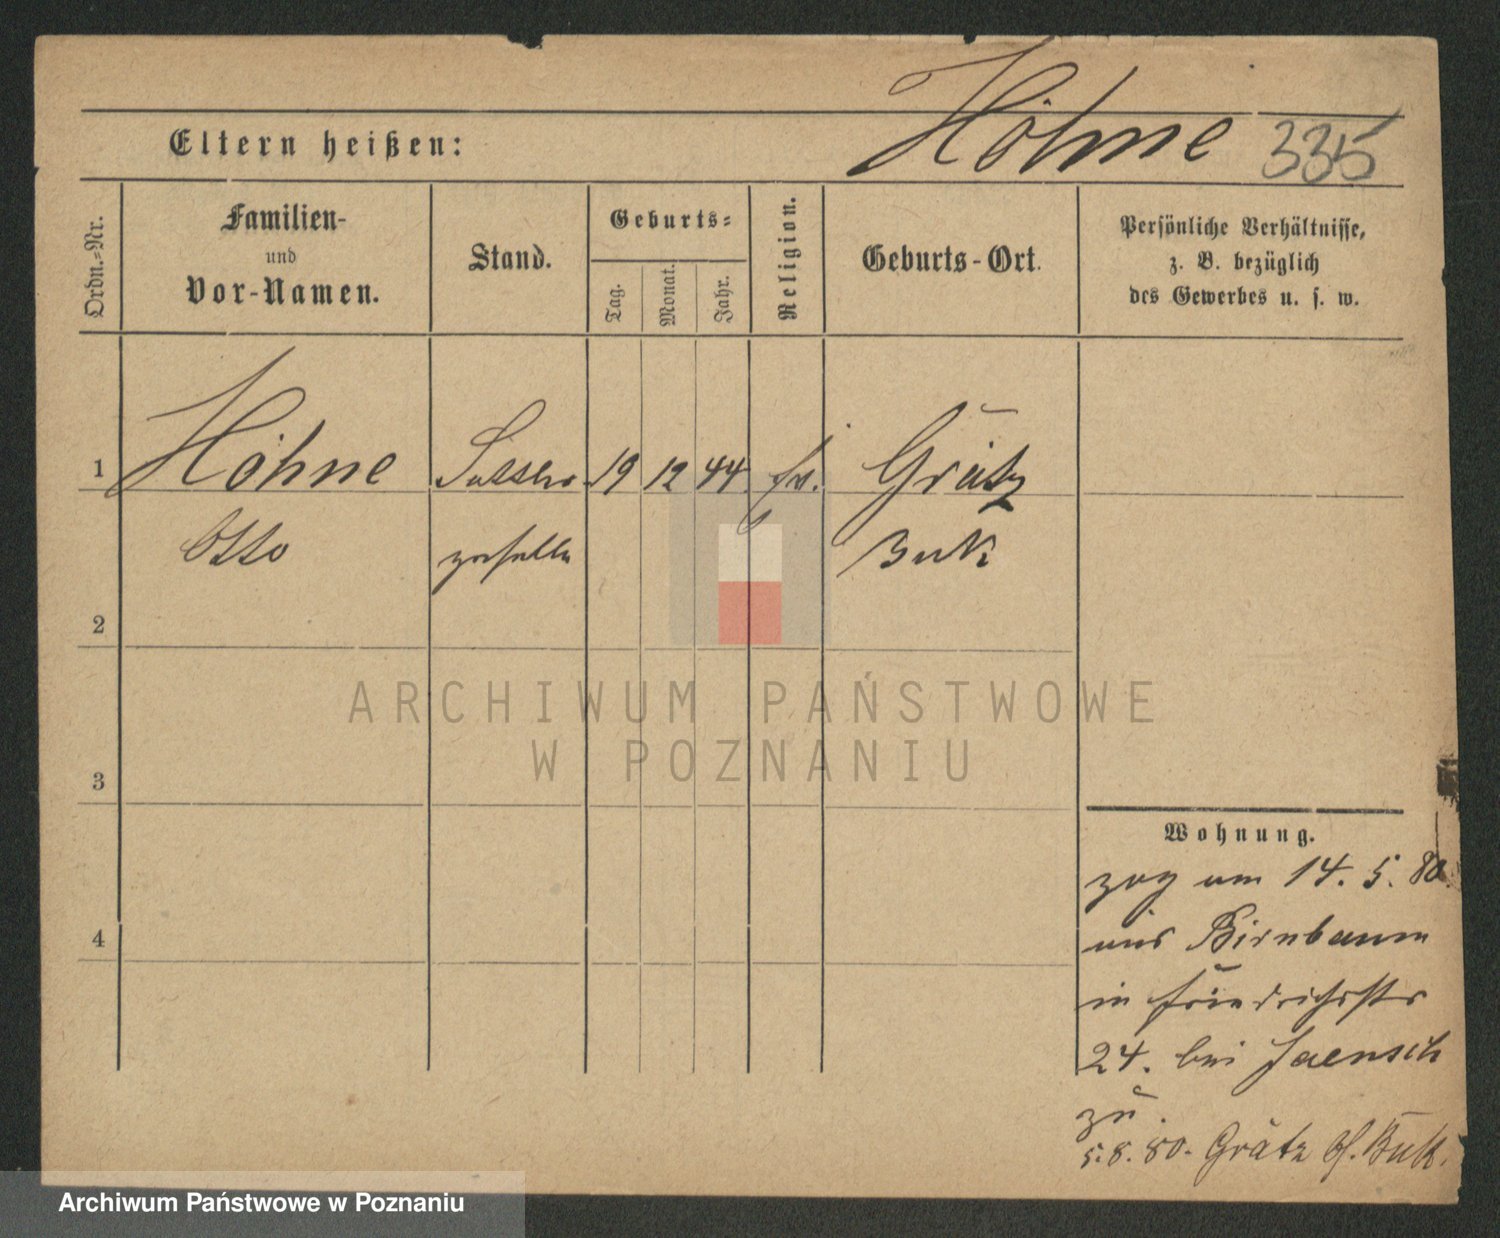 Höhne 335
Eltern heißen:
Ordn.-Nr.
Familien-
und
Vor-Namen.
Stand.
Geburts-
Tag.
Monat.
Jahr.
Religion.
Geburts-Ort.
Persönliche Verhältnisse,
z. B. bezüglich
des Gewerbes u. s. w.
1 Höhne 19 12 44 Grätz
Otto Buk
2
3
4
Wohnung.
zog am 14. 5. 80.
aus Birnbaum
in Friedrichsstr
24. bei Jaensch
zu.
5.8.80. Grätz Kr. Buk.
ARCHIWUM PAŃSTWOWE
W POZNANIU
Archiwum Państwowe w Poznaniu